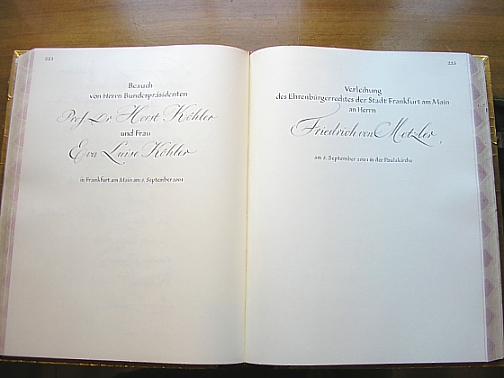 Besuch
von Herrn Bundespräsidenten
Prof. Dr. Horst Köhler
und Frau
Eva Luise Köhler
in Frankfurt am Main am September
225
Verleihung
des Ehrenbürgerrechtes der Stadt Frankfurt am Main
an Herrn
Friedrich von Metzler
am September in der Paulskirche